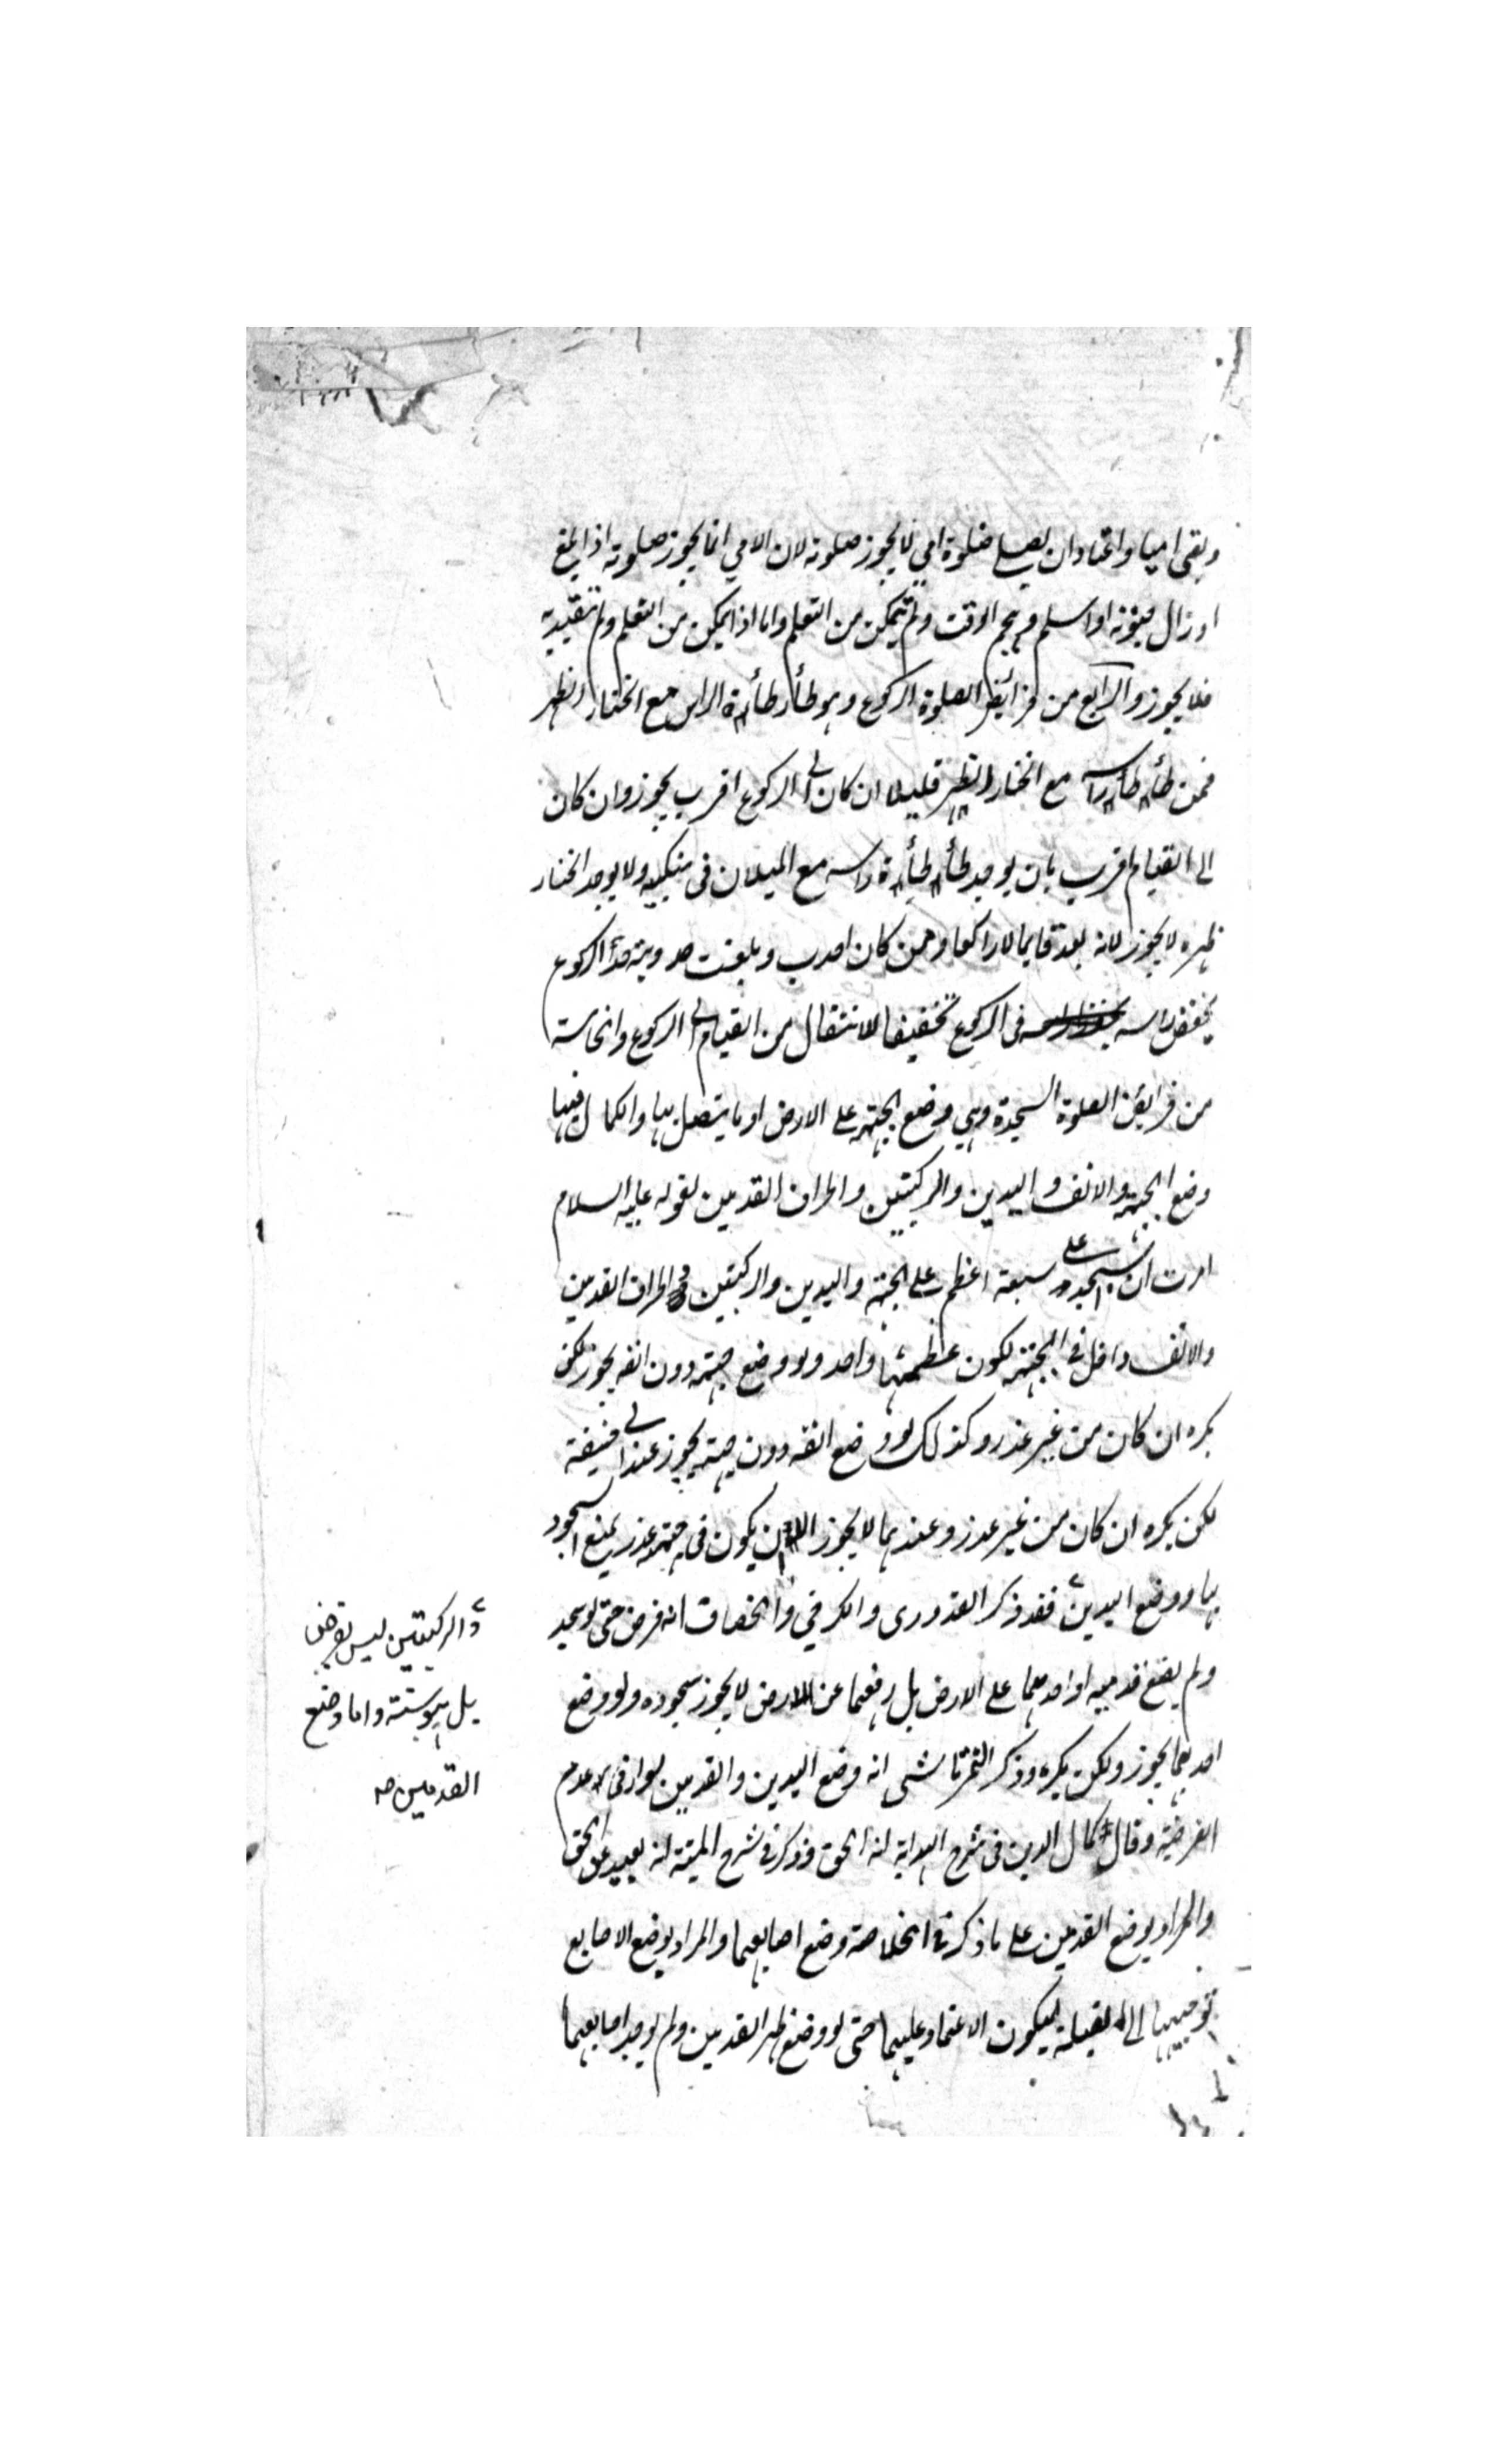 وبقى اميا واعتاد ان يصلى صلوة امي لا يجوز صلوته لان الامي انما يجوز صلوته اذا بلغ
او زال جنونه او اسلم فى الوقت ولم يتمكن من التعلم واما اذا تمكن من التعلم ولم
فلا يجوز والرابع من فرائض الصلوة الركوع وهو طأطأة الراس مع انحناء الظهر
فمن طأطأ راسه مع انحناء الظهر قليلا ان كان الى الركوع اقرب يجوز وان كان
الى القيام اقرب بان يوجد طأطأة راسه مع الميلان فى منكبيه ولا يوجد انحناء
ظهره لا يجوز لانه يعد قايما لا راكعا ومن كان احدب وبلغت حدوبته حد الركوع
يخفض راسه فى الركوع تخفيفا للانتقال من القيام الى الركوع والخامسة
من فرايض الصلوة السجدة وهي وضع الجبهة على الارض او ما يتصل بها والكمال فيها
وضع الجبهة والانف واليدين والركبتين واطراف القدمين لقوله عليه السلام
امرت ان اسجد على سبعة اعظم على الجبهة واليدين والركبتين واطراف القدمين
والانف داخل فى الجبهة لكون عظمهما واحد ولو وضع جبهته دون انفه يجوز لكن
يكره ان كان من غير عذر وكذلك لو وضع انفه دون جبهته يجوز عند ابى حنيفة
لكن يكره ان كان من غير عذر وعندهما لا يجوز الا ان يكون فى جبهته عذر يمنع السجود
بها ووضع اليدين فقد ذكر القدورى والكرخي والخصاف انه فرض حتى لو سجد
ولم يضع قدميه او احدهما على الارض بل رفعهما عن الارض لا يجوز سجوده ولو وضع
احديهما يجوز ولكن يكره وذكر التمرتاشى انه وضع اليدين والقدمين سواء فى عدم
الفرضية وقال كمال الدين فى شرح الهداية انه الحق وذكر فى شرح المنية انه بعيد عن الحق
والمراد بوضع القدمين على ما ذكر فى الخلاصة وضع اصابعهما والمراد بوضع الاصابع
توجيهها الى القبلة ليكون الاعتماد عليهما حتى لو وضع ظهر القدمين ولم يوجد اصابعهما
والركبتين ليس بفرض
بل هو سنة واما وضع
القدمين صه